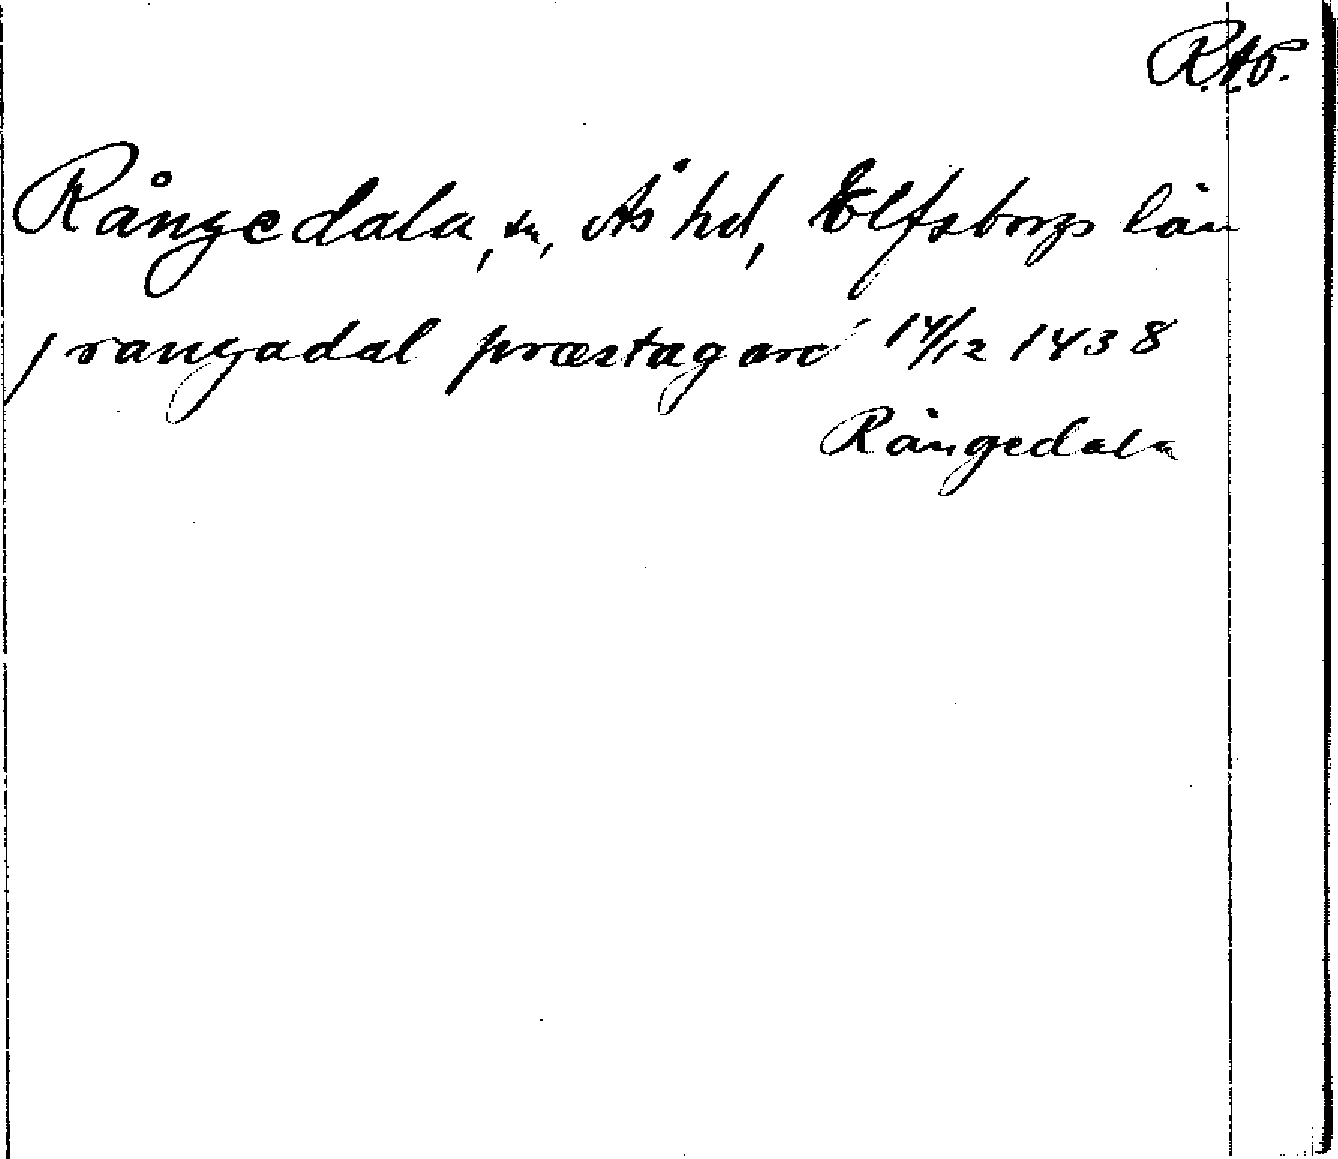 R.A.P.
Rångedala, sn, Ås hd, Elfsborgs län
j rangadal præstagard 14/12 1438
Rångedala